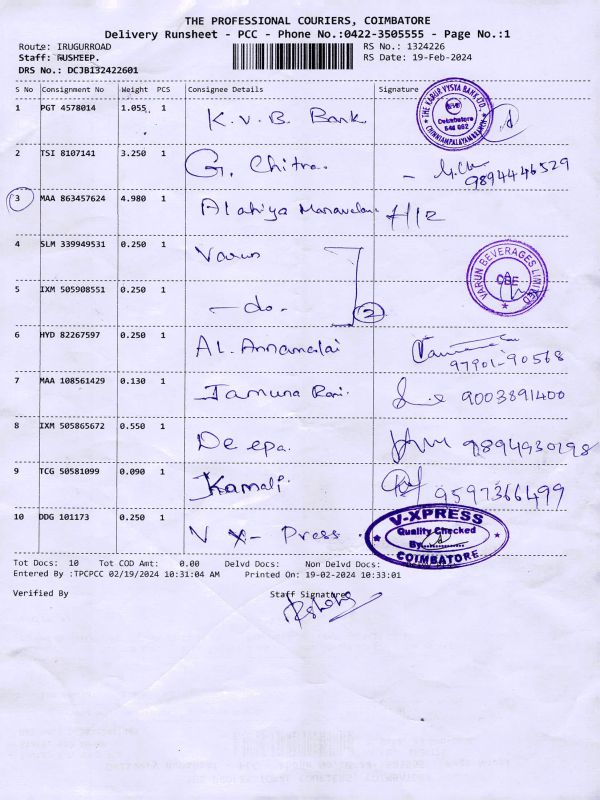 THE PROFESSIONAL COURIERS, COIMBATORE
Delivery Runsheet - PCC - Phone No.:0422-3505555 - Page No.:1
Route: IRUGURROAD RS No.: 1324226
Staff: RUSHEEP. RS Date: 19-Feb-2024
DRS No.: DCJB132422601
S No Consignment No Weight PCS Consignee Details Signature
1 PGT 4578014 1.055 1 K.V.B. Bank
THE KARUR VYSYA BANK LTD. KVB Coimbatore 641 062 CHINNIAMPALAYAM BRANCH
2 TSI 8107141 3.250 1 G. Chitra. - G.Ch
9894446529
3 MAA 863457624 4.980 1 H/2
4 SLM 339949531 0.250 1 Varun
VARUN BEVERAGES LIMITED CBE
5 IXM 505908551 0.250 1 -do- 2
6 HYD 82267597 0.250 1 AL. Annamalai
97901-90568
7 MAA 108561429 0.130 1 Jamuna Rani. 9003891400
8 IXM 505865672 0.550 1 Deepa. 9894930298
9 TCG 50581099 0.090 1 Kamali 9597366499
10 DDG 101173 0.250 1 V X- Press.
V-XPRESS Quality Checked By COIMBATORE
Tot Docs: 10 Tot COD Amt: 0.00 Delvd Docs: Non Delvd Docs:
Entered By :TPCPCC 02/19/2024 10:31:04 AM Printed On: 19-02-2024 10:33:01
Verified By Staff Signature